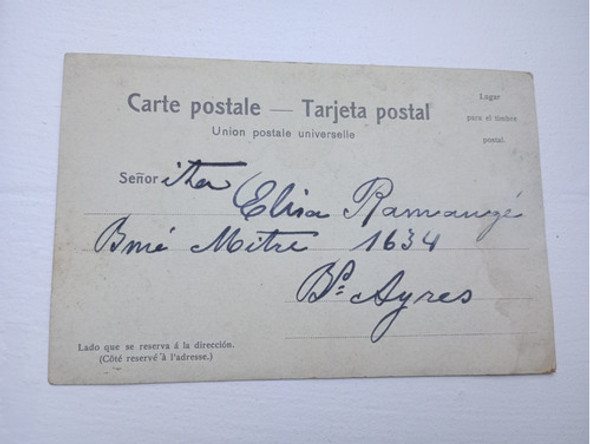 Carte postale — Tarjeta postal
Union postale universelle
Lugar
para el timbre
postal.
Señorita Elisa Ramaugé
Bmé Mitre 1634
Bs. Ayres
Lado que se reserva á la dirección.
(Côté reservé à l'adresse.)